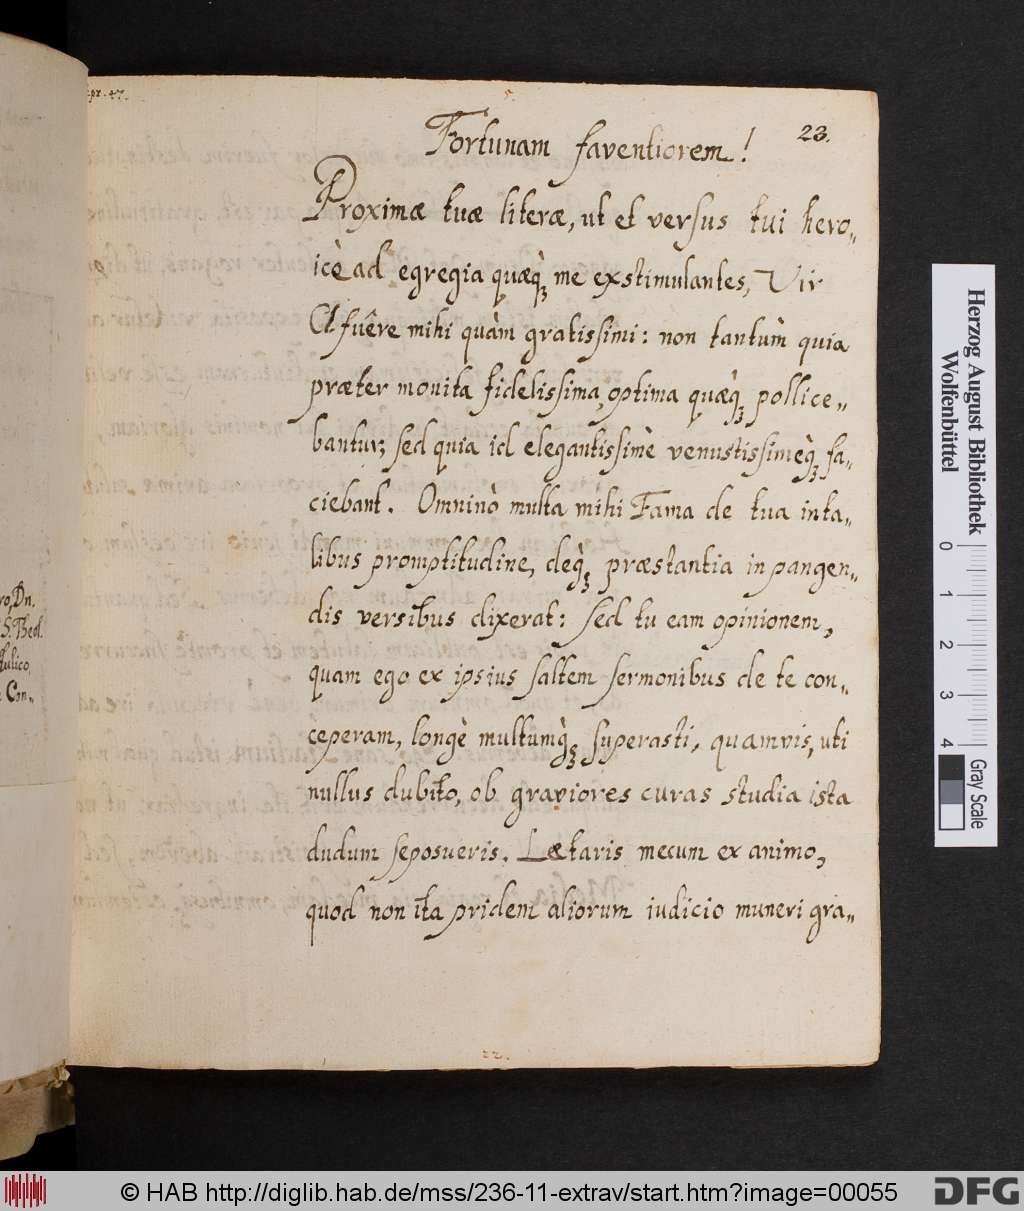 Fortunam faventiorem!
23.
Proximæ tuæ literæ, ut et versus tui hero„
icè ad egregia quæq; me exstimulantes, Vir
Cl fuêre mihi quàm gratissimi: non tantùm quia
præter monita fidelissima, optima quæq; pollice„
bantur; sed quia id elegantissimè venustissimeq; fa„
ciebant. Omninò multa mihi Fama de tua in ta„
libus promptitudine, deq; præstantia in pangen„
dis versibus dixerat: sed tu eam opinionem,
quam ego ex ipsius saltem sermonibus de te con„
ceperam, longè multumq; superasti, quamvis, uti
nullus dubito, ob graviores curas studia ista
dudum seposueris. Lætaris mecum ex animo,
quod non ita pridem aliorum iudicio muneri gra„
22.
ro, Dn.
S. Theol.
Aulico
Con„
Herzog August Bibliothek
Wolfenbüttel
0 1 2 3 4
Gray Scale
© HAB http://diglib.hab.de/mss/236-11-extrav/start.htm?image=00055
DFG